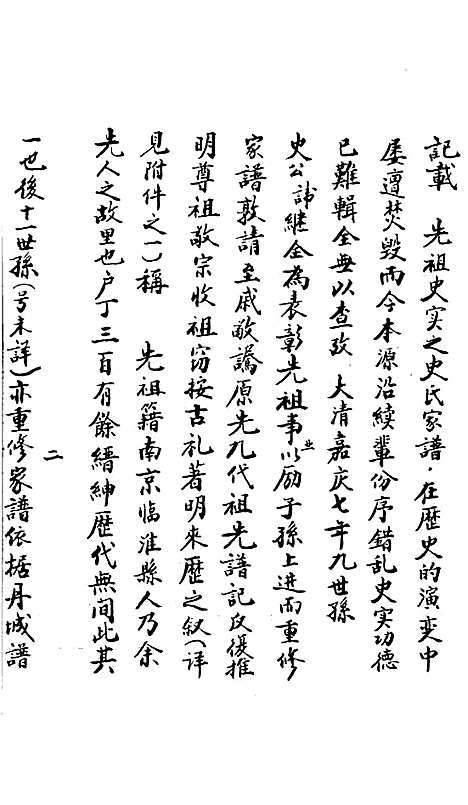 记载　先祖史实之史氏家谱．在歷史的演变中
屡遭焚毁而今本源沿续輩份序錯乱史实功德
已難輯全無以查攷　大清嘉庆七年九世孫
史公諱継全為表彰先祖事业以励子孫上进而重修
家譜敦請至戚敬譑原先九代祖先譜記反復推
明尊祖敬宗收祖窃按古礼著明來歷之叙（详
見附件之一）稱　先祖籍南京临淮縣人乃余
先人之故里也户丁三百有餘縉紳歷代無间此其
一也後十一世孫（号未詳）亦重修家譜依据丹城譜
二